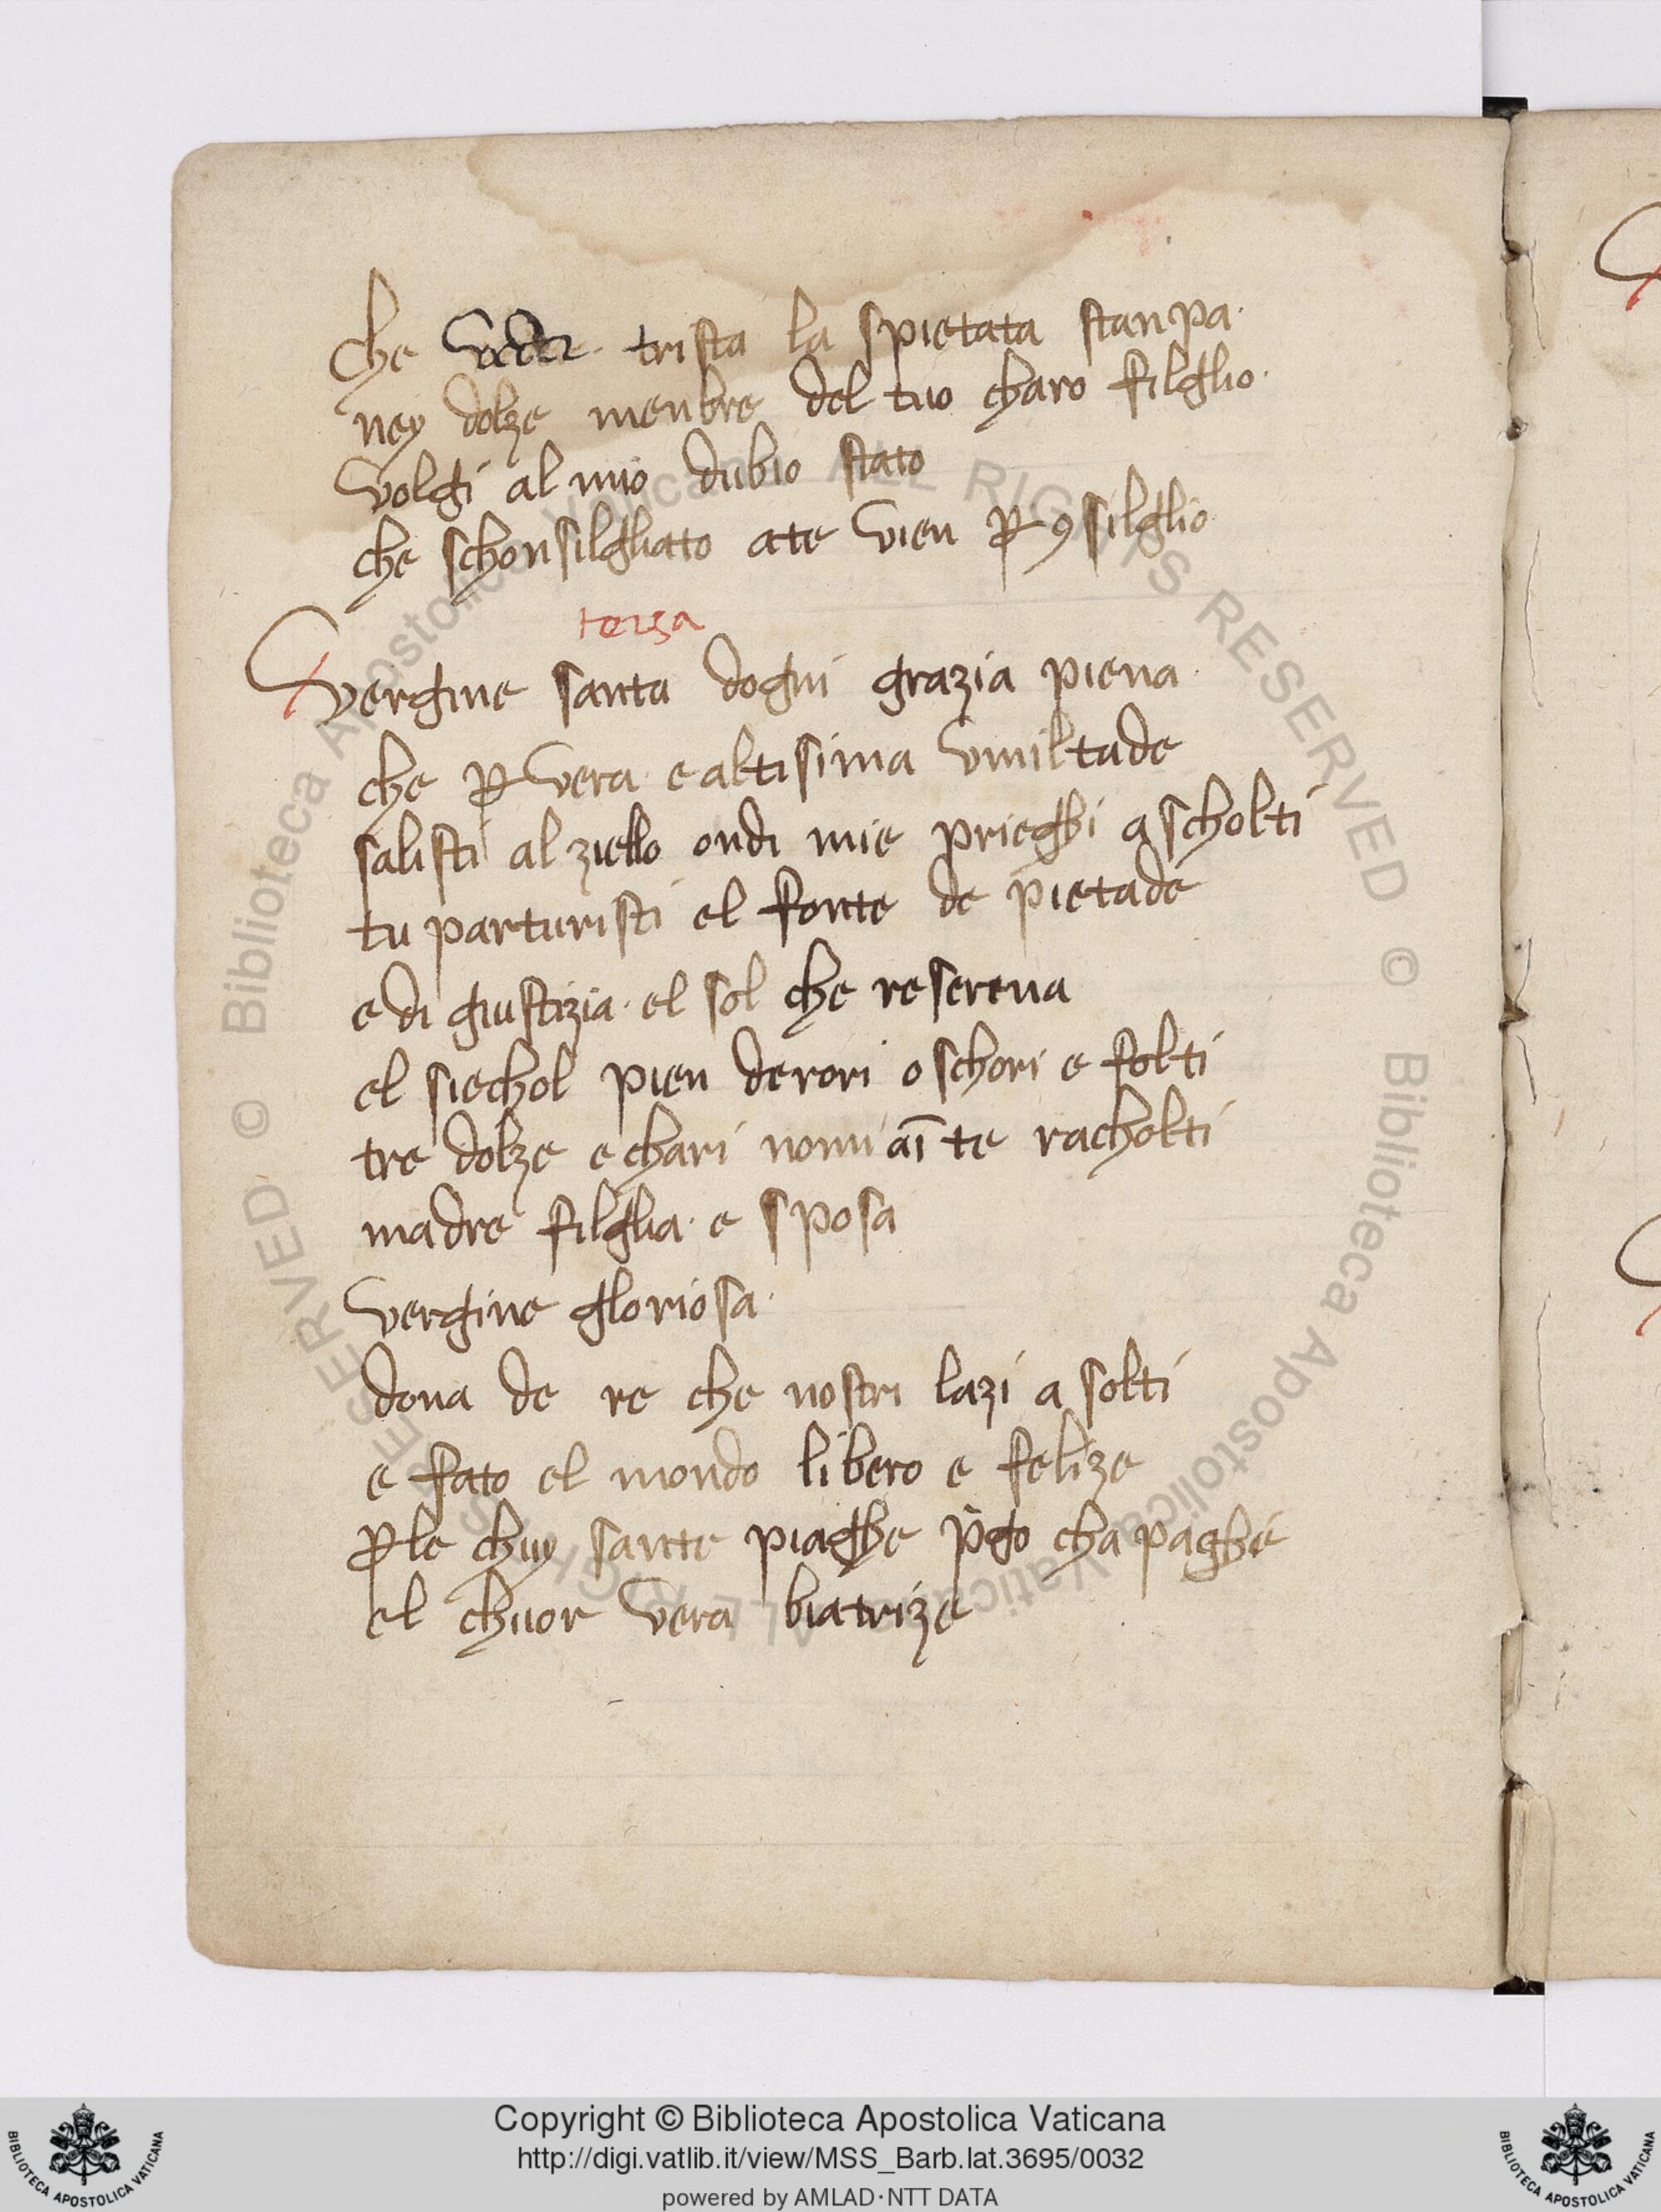 che veder trista la spietata stanpa·
ney dolze menbre del tuo charo filglio·
volgi al mio dubio stato
che schonsilghato ate vien ꝑ ꝯsilglio
terza
Vergine santa dogni grazia piena·
che ꝑ vera· e altisima vmiltade
salisti al ziello ondi mie prieghi ascholti
tu parturisti el fonte de pietade
e di giustizia· el sol che reserena
el siechol pien derori oschori e folti
tre dolze e chari nomi aī te racholti
madre filglia· e sposa
vergine gloriosa·
dona de re che nostri lazi a solti
e fato el mondo libero e felize
ꝑ le chuy sante piaghe p̄go cha paghe
el chuor vera biatrize
© Biblioteca Apostolica Vaticana ALL RIGHTS RESERVED © Biblioteca Apostolica Vaticana ALL RIGHTS RESERVED
Copyright © Biblioteca Apostolica Vaticana
http://digi.vatlib.it/view/MSS_Barb.lat.3695/0032
powered by AMLAD·NTT DATA
BIBLIOTECA APOSTOLICA VATICANA
BIBLIOTECA APOSTOLICA VATICANA